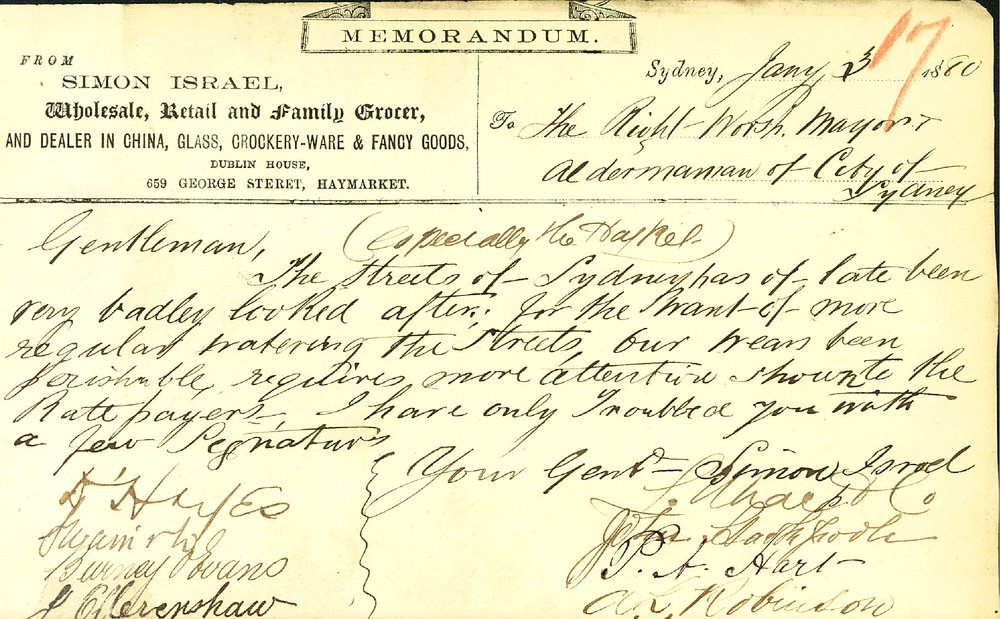 MEMORANDUM.
17
FROM
SIMON ISRAEL,
Wholesale, Retail and Family Grocer,
AND DEALER IN CHINA, GLASS, CROCKERY-WARE & FANCY GOODS,
DUBLIN HOUSE,
659 GEORGE STERET, HAYMARKET.
Sydney, Jany 3 1880
To The Right Worsh. Mayor &
Aldermanian of City of
Sydney
Gentleman, (especially the Haymarket)
The Streets of Sydney has of late been
very badley looked after; for the Want of more
regular watering the Streets, our wears been
perishable, requires more attention shown to the
Rate payers I have only Troubled you with
a few Segnaturs
Your Gent Simon Israel
D' Hayes
& Co
John
Burney Evans
P. A. Hart
Ollerenshaw
Robinson